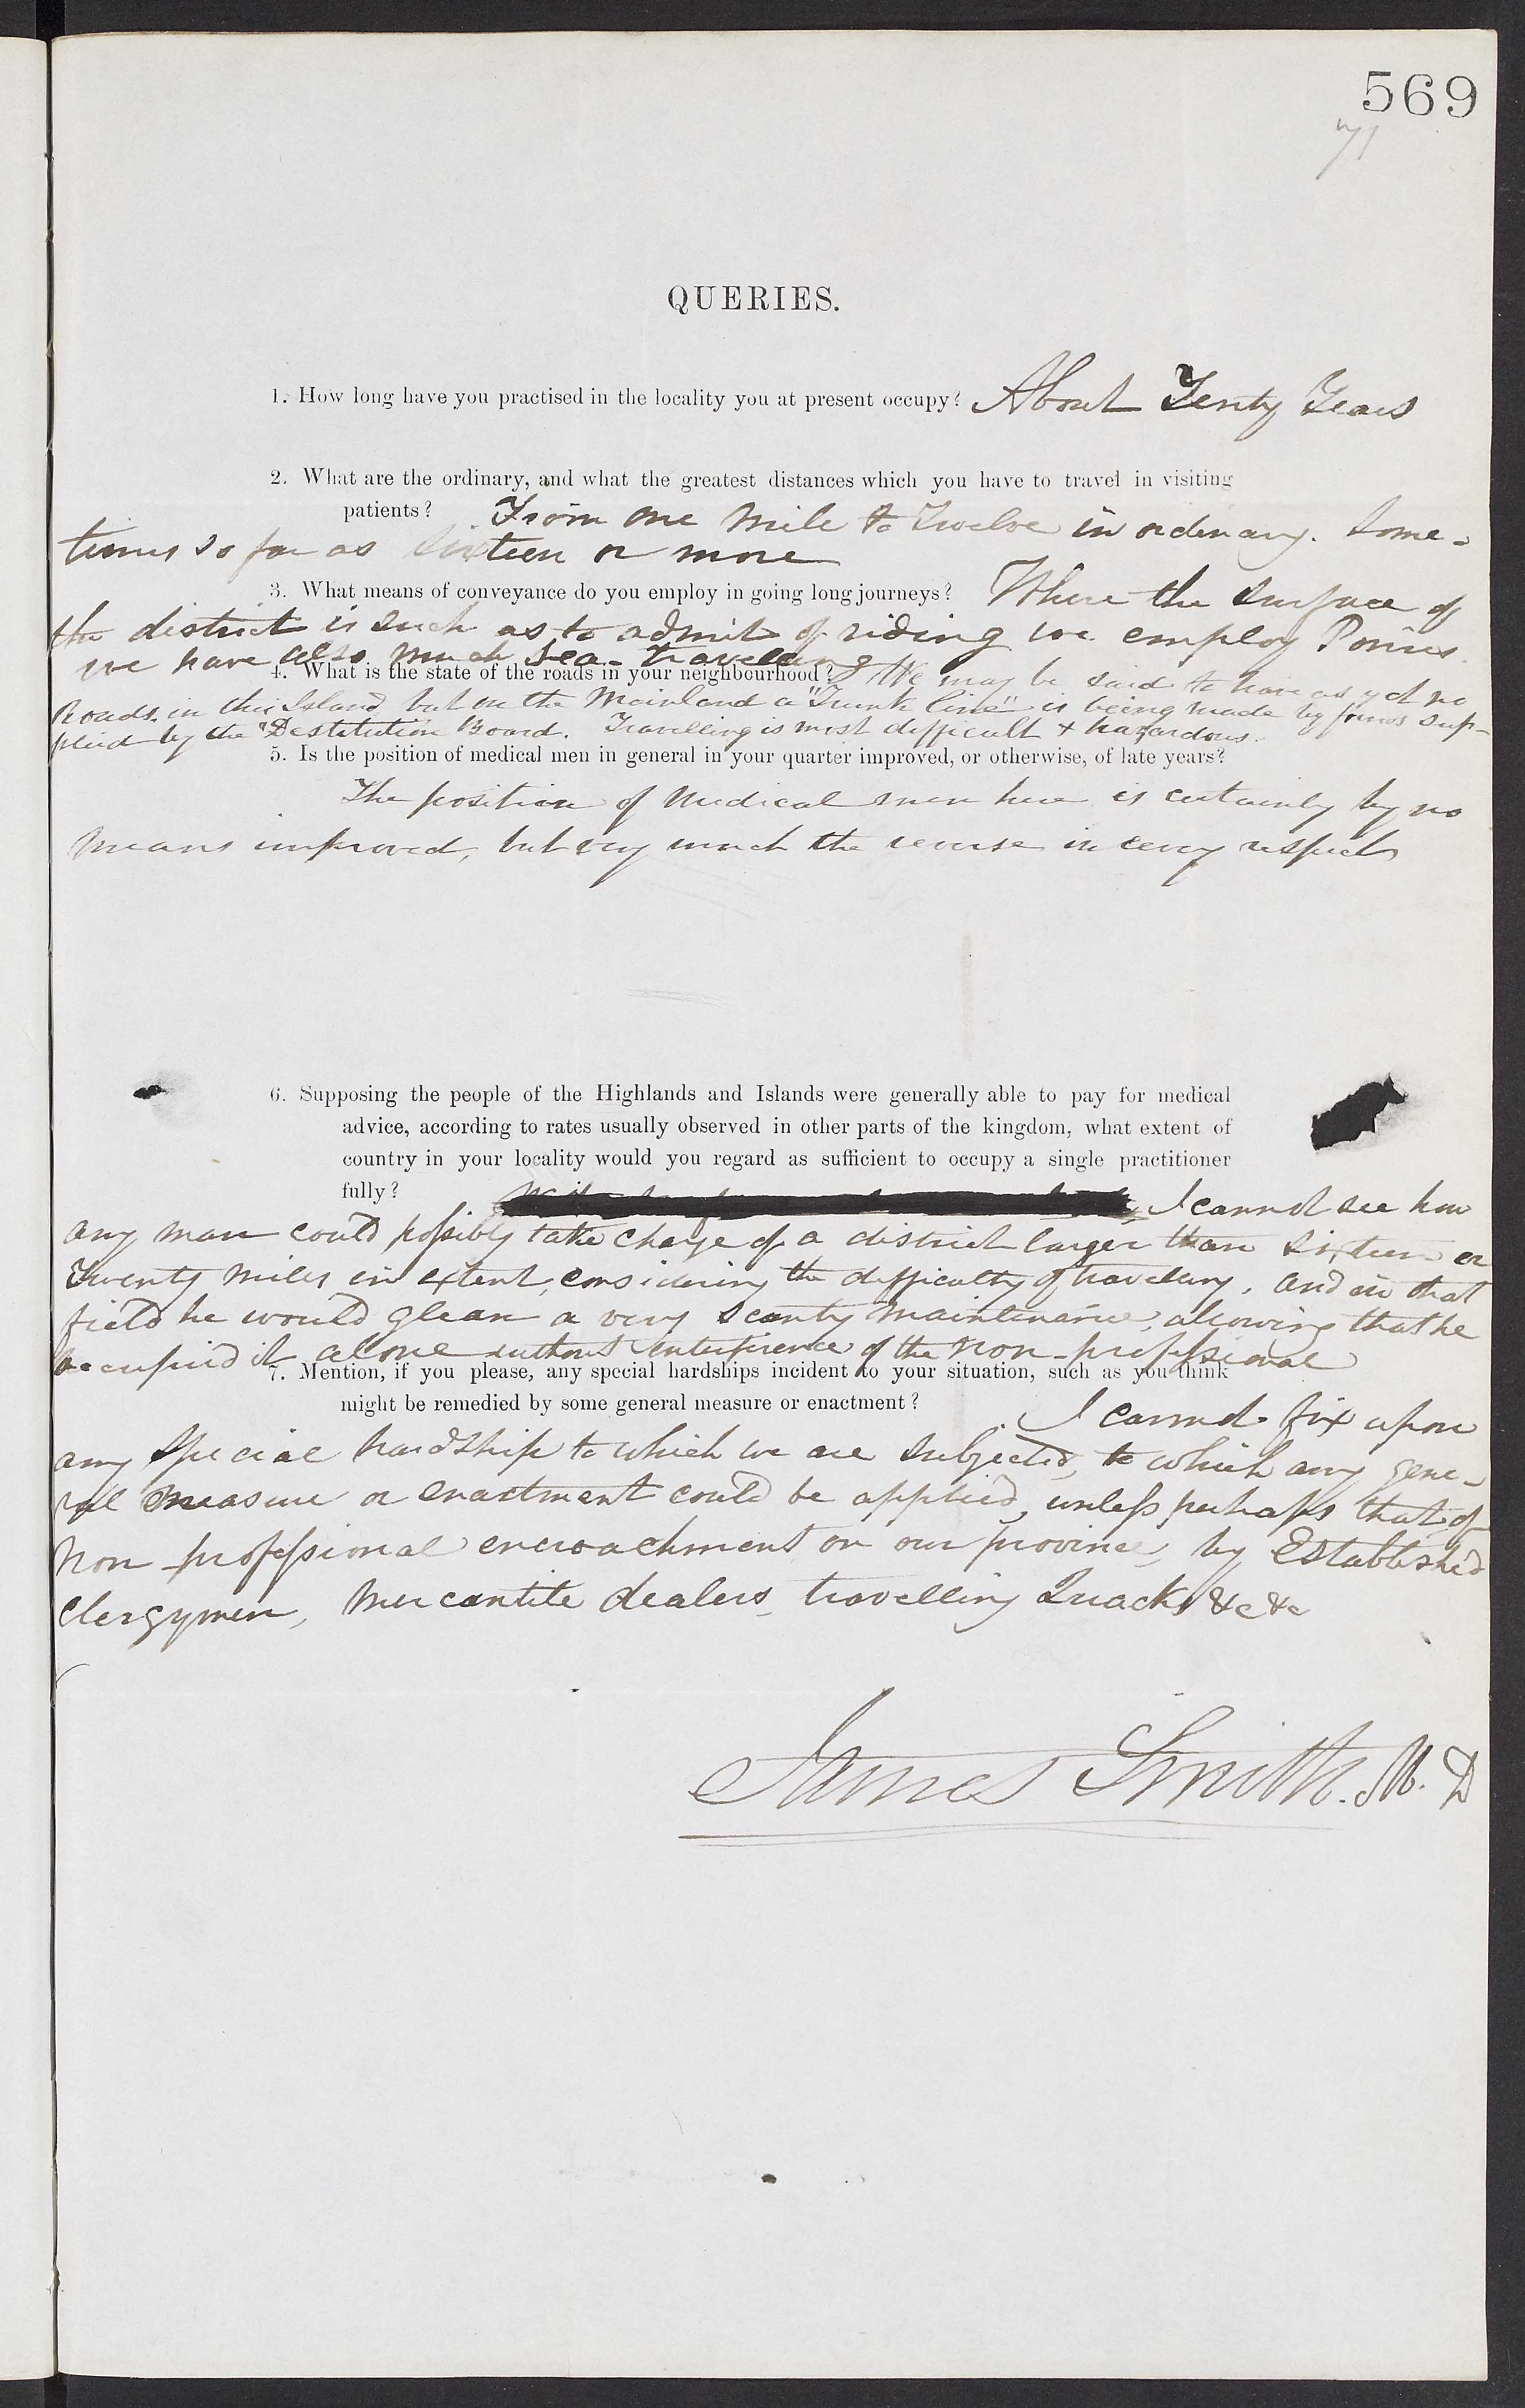 569
71
QUERIES.
1. How long have you practised in the locality you at present occupy? About Tenty Years
2. What are the ordinary, and what the greatest distances which you have to travel in visiting
patients? From one mile to Twelve in ordinary. Some-
times so far as sixteen or more
3. What means of conveyance do you employ in going long journeys? Where the surface of
the district is such as to admit of riding we employ Ponies.
we have also much sea-travelling
4. What is the state of the roads in your neighbourhood? We may be said to have as yet no
Roads in this Island but on the Mainland a "Trunk line" is being made by funds sup-
plied by the "Destitution Board. Travelling is most difficult & hazardous.
5. Is the position of medical men in general in your quarter improved, or otherwise, of late years?
The position of Medical men here is certainly by no
means improved, but very much the reverse in every respect
6. Supposing the people of the Highlands and Islands were generally able to pay for medical
advice, according to rates usually observed in other parts of the kingdom, what extent of
country in your locality would you regard as sufficient to occupy a single practitioner
fully? I cannot see how
any man could possibly take charge of a district larger than sixteen or
Twenty miles in extent, considering the difficulty of travelling, and in that
field he would glean a very scanty maintenance, allowing that he
occupied it alone without interference of the non-professional
7. Mention, if you please, any special hardships incident to your situation, such as you think
might be remedied by some general measure or enactment? I cannot fix upon
any special hardship to which we are subjected, to which any gene-
ral measure or enactment could be applied, unless perhaps that of
non-professional encroachment on our province, by Established
Clergymen, Mercantile dealers, travelling Quacks &c &c
James Smith. M. D